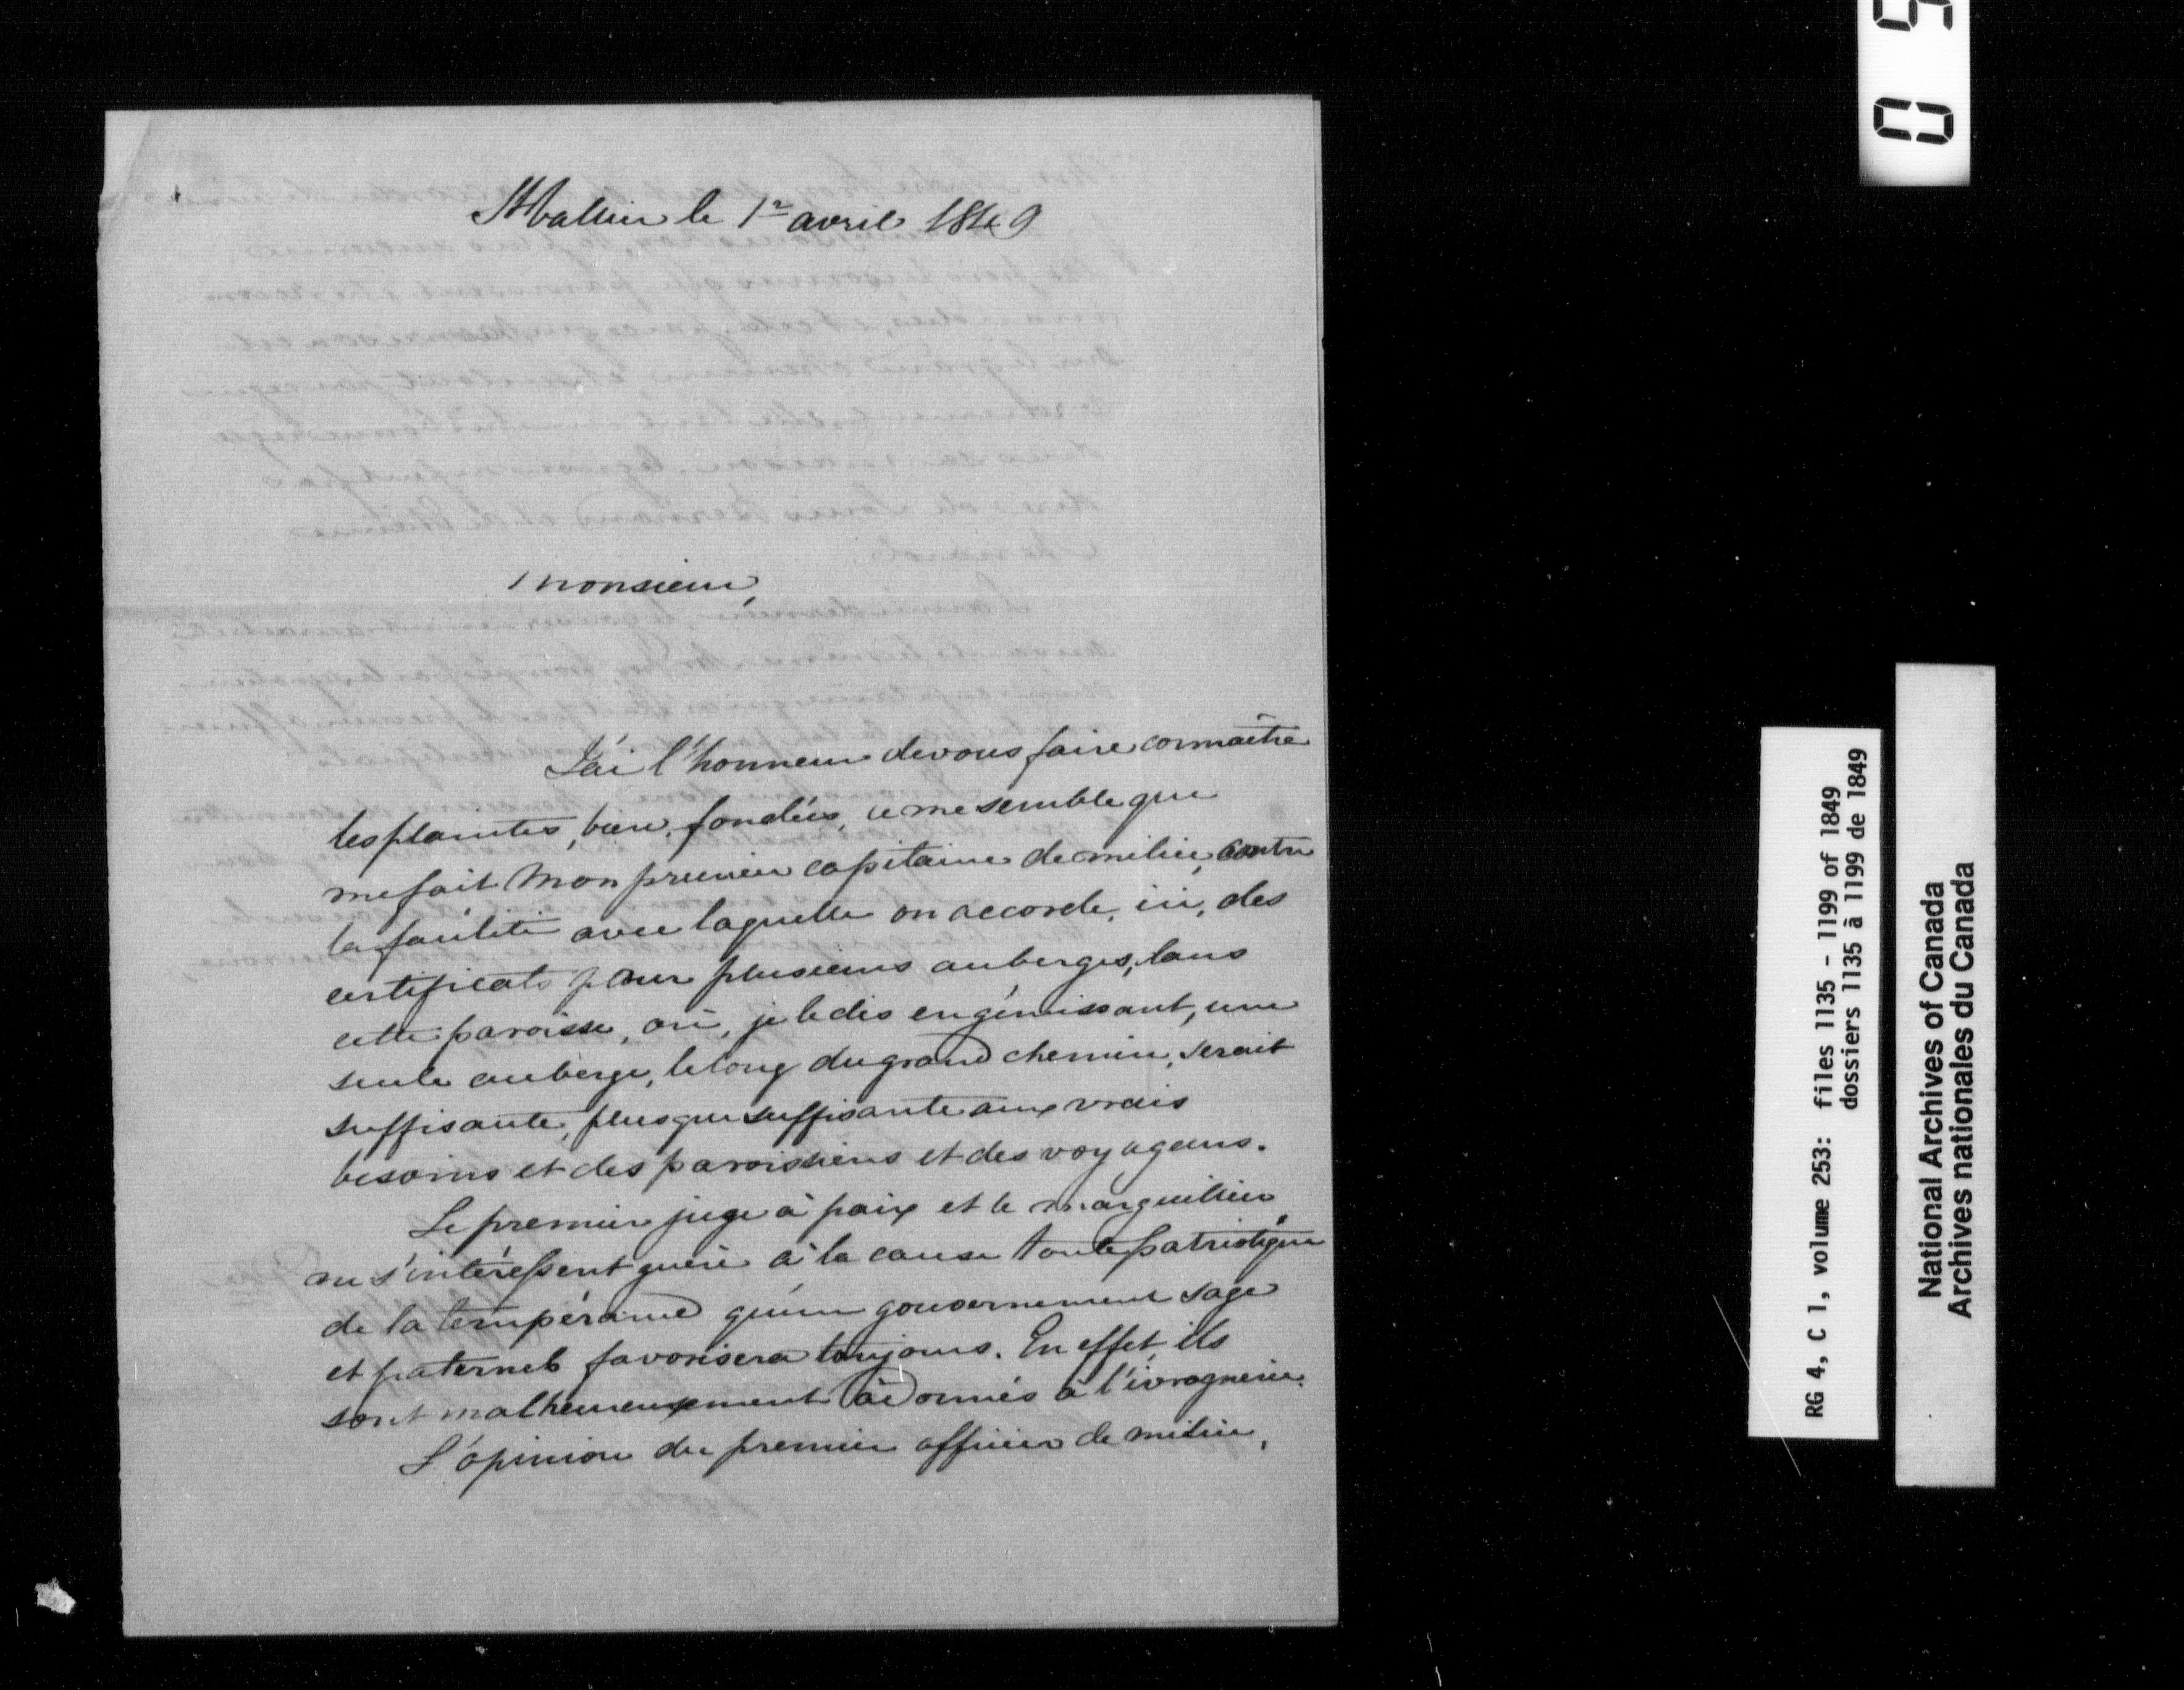 St Vallier le 1er avril 1849
Monsieur,
J'ai l'honneur de vous faire connaître
les plaintes, bien fondées, ce me semble que
me fait mon premier capitaine de milice, contre
la facilité avec laquelle on accorde, ici, des
certificats pour plusieurs auberges, dans
cette paroisse, où, je le dis en gémissant, une
seule auberge, le long du grand chemin, serait
suffisante, plus que suffisante aux vrais
besoins et des paroissiens et des voyageurs.
Le premier juge à paix et le marguillier
ne s'intéressent guère à la cause toute patriotique
de la tempérance qu'un gouvernement sage
et paternel favorisera toujours. En effet, ils
sont malheureusement adonnés à l'ivrognerie.
L'opinion du premier officier de milice,
0 5
RG 4, C 1, volume 253: files 1135 - 1199 of 1849
dossiers 1135 à 1199 de 1849
National Archives of Canada
Archives nationales du Canada